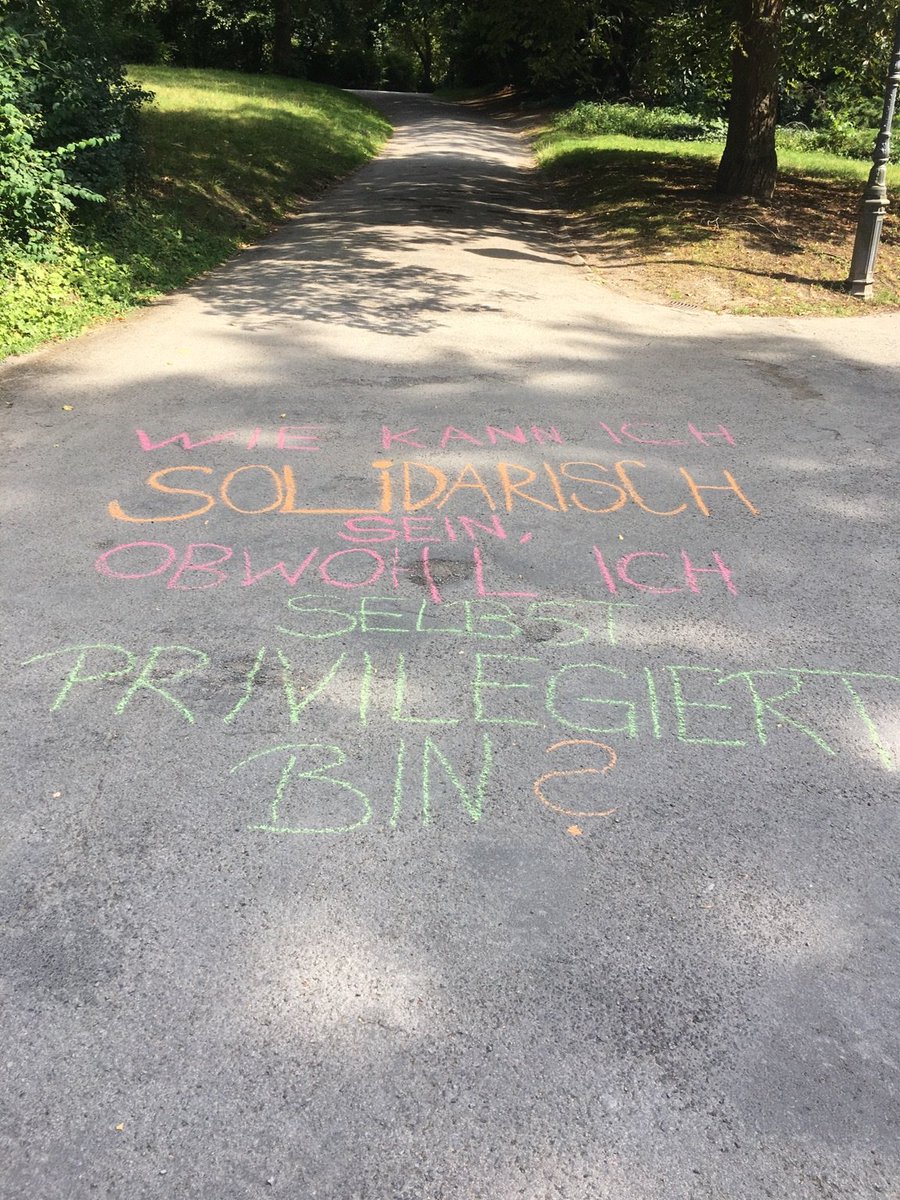 WIE KANN ICH
SOLiDARISCH
SEIN,
OBWOHL ICH
SELBST
PRIVILEGIERT
BIN?